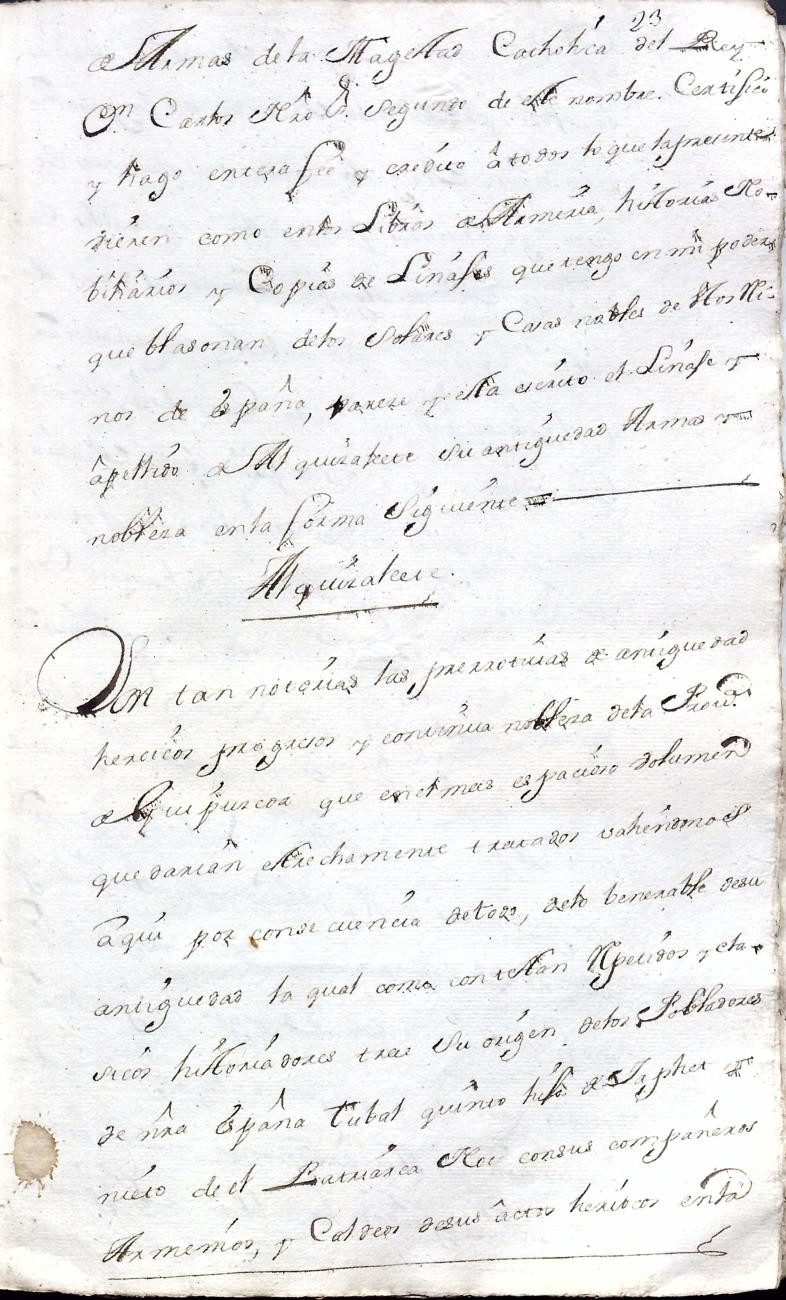 23
de Armas de la Magestad Catholica del Rey
Dn Carlos Nro Sr. Segundo de este nombre. Certifico
y hago entera fee y credito â todos lo que la presente
vieren como en los Libros de Armeria, historias No-
biliarios y Copias de Linajes que tengo en mi poder
que blasonan de los Solares y Casas nobles de Los Rei-
nos de España, pareze y esta escrito el Linaje y
âpellido de Alquizalete Su antiguedad Armas y
nobleza en la forma Siguiente
Alquizalete.
Son tan notorias las prerrotivas de antiguedad
heroicos progresos y continua nobleza de la Prova.
de Guipuzcoa que en el mas espacioso volumen
quedarian estrechamente tratados valiendonos
âqui por consecuencia de todo, de lo benerable de su
antiguedad la qual como contestan Repetidos y cla-
sicos historiadores trae Su origen de los Pobladores
de nra España Tubal quinto hijo de Japhet y
nieto de el Patriarca Noe con sus compañeros
Armenios, y Caldeos de sus âctos heriocos en la